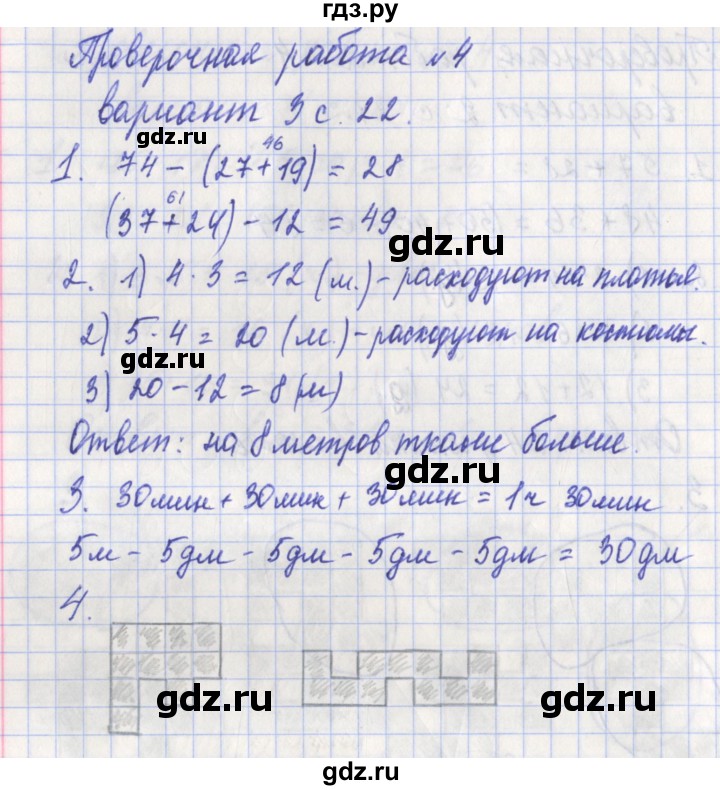 гдз.ру
Проверочная работа №4
вариант 3 с. 22.
gdz.ru
46
1. 74 - (27+19) = 28
61
(37+24) - 12 = 49
gdz.ru
2. 1) 4 · 3 = 12 (м.) - расходуют на платья.
2) 5 · 4 = 20 (м.) - расходуют на костюмы.
gdz.ru
3) 20 - 12 = 8 (м)
Ответ: на 8 метров ткани больше.
gdz.ru
3. 30мин + 30мин + 30мин = 1ч 30мин
5м - 5дм - 5дм - 5дм - 5дм = 30дм
4.
gdz.ru
gdz.ru
gdz.ru